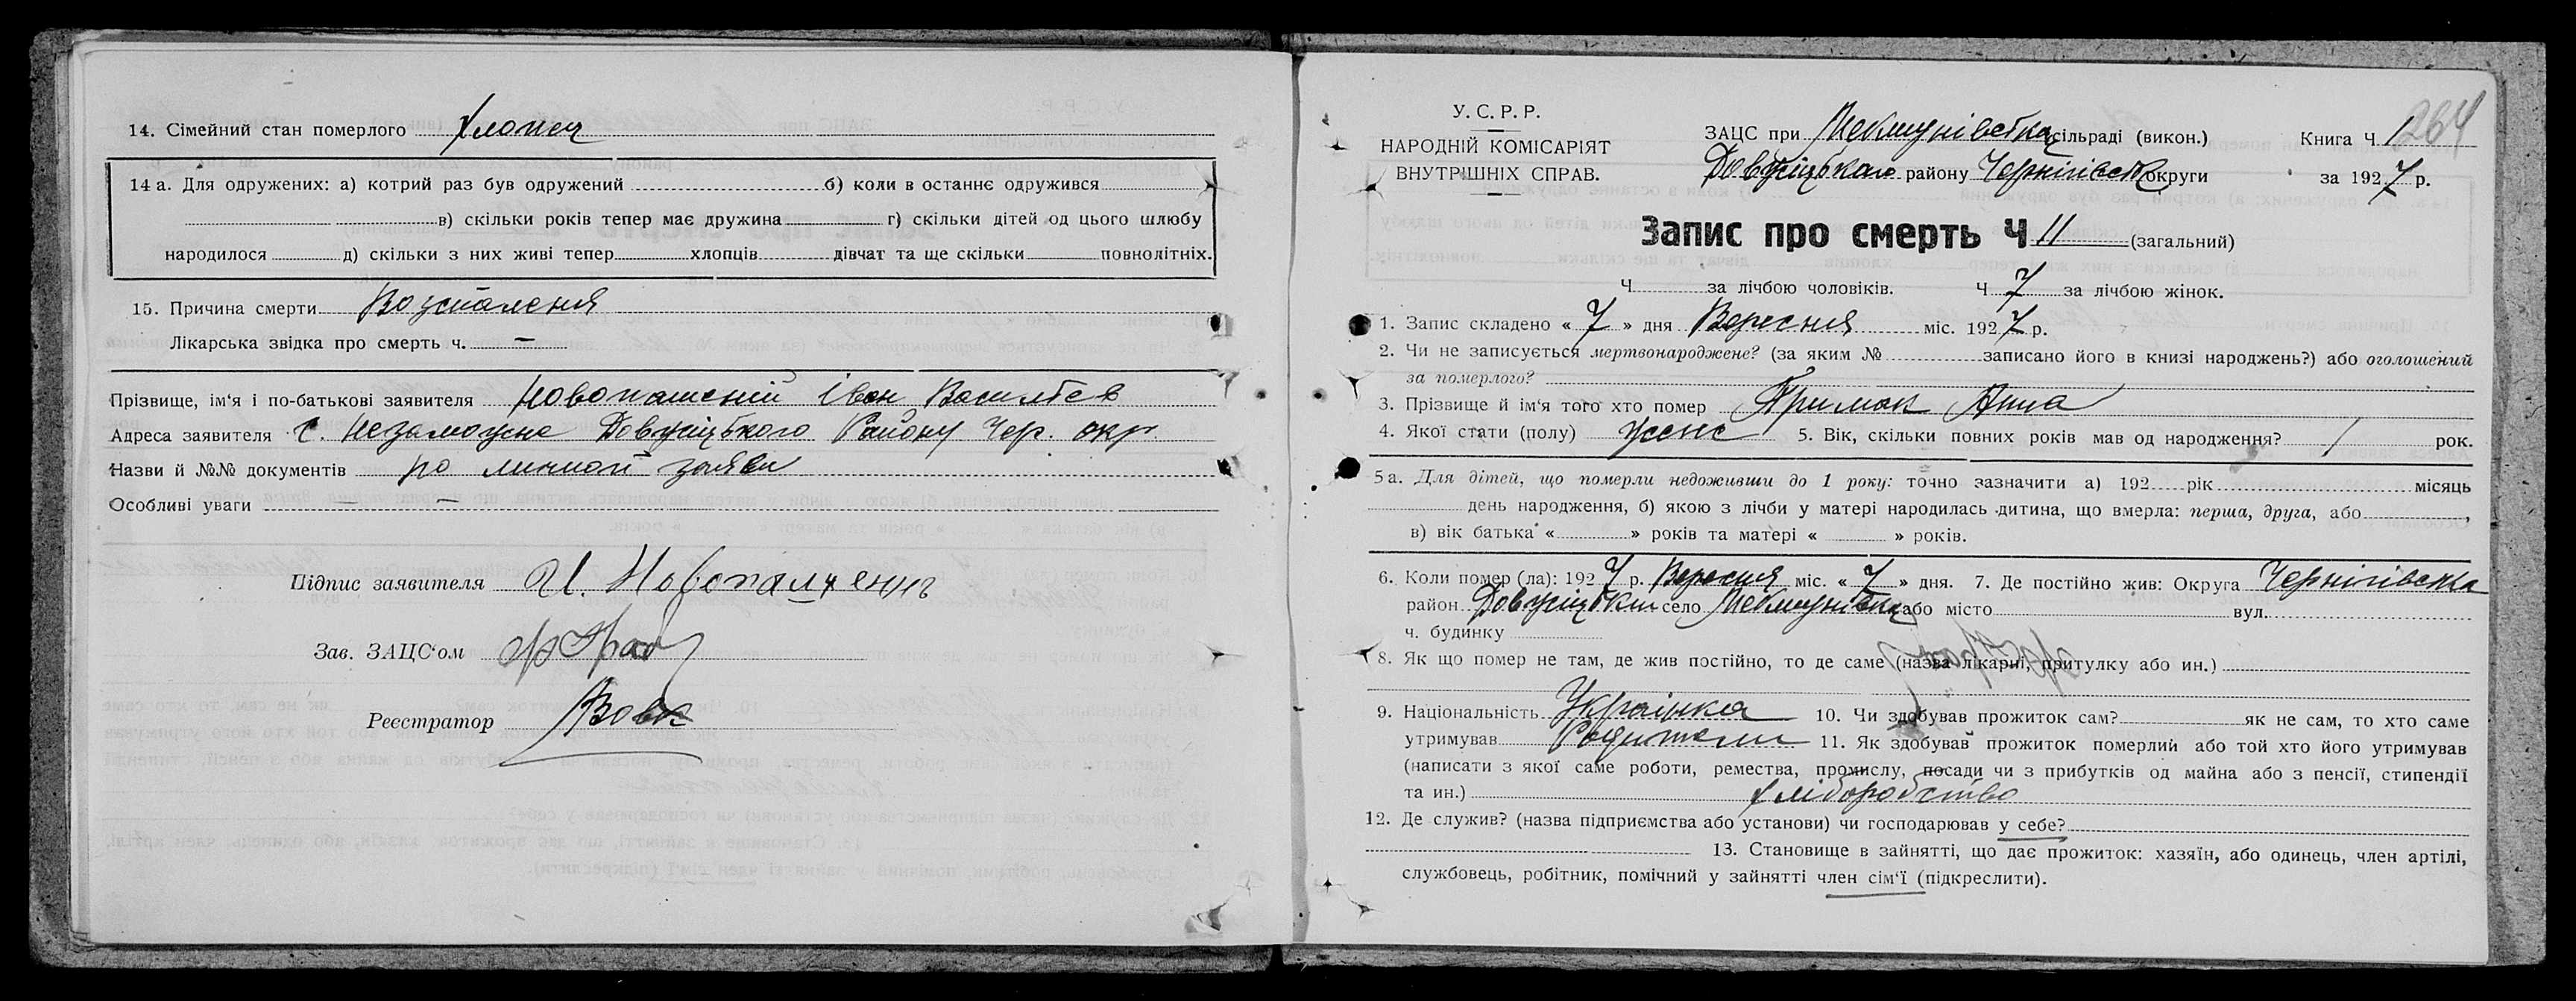 14. Сімейний стан померлого Хлопец
14 а. Для одружених: а) котрий раз був одружений б) коли в останнє одружився
в) скільки років тепер має дружина г) скільки дітей од цього шлюбу
народилося д) скільки з них живі тепер хлопців дівчат та ще скільки повнолітніх.
15. Причина смерти Возпаленія
Лікарська звідка про смерть ч. —
Прізвище, ім'я і по-батькові заявителя Іван
Адреса заявителя с. Незаможне Району Чер. окр.
Назви й №№ документів по личной заяви
Особливі уваги — —
Підпис заявителя И.
Зав. ЗАЦС'ом
Реєстратор Вовк
У. С. Р. Р.
НАРОДНІЙ КОМІСАРІЯТ
ВНУТРІШНІХ СПРАВ.
ЗАЦС при сільраді (викон.)
району Чернігівськ округи
Книга Ч. 1
264
за 1927 р.
Запис про смерть Ч 11 (загальний)
Ч за лічбою чоловіків. Ч 7 за лічбою жінок.
1. Запис складено « 7 » дня Вересня міс. 1927 р.
2. Чи не записується мертвонароджене? (за яким № записано його в книзі народжень?) або оголошений
за померлого?
3. Прізвище й ім'я того хто помер Примак Анна
4. Якої стати (полу) женс 5. Вік, скільки повних років мав од народження? 1 рок.
5 а. Для дітей, що померли недоживши до 1 року: точно зазначити а) 192 рік місяць
день народження, б) якою з лічби у матері народилась дитина, що вмерла: перша, друга, або ,
в) вік батька « » років та матері « » років.
6. Коли помер (ла): 1927 р. Вересня міс. « 7 » дня. 7. Де постійно жив: Округа Чернігівська
район село або місто вул.
ч. будинку
8. Як що помер не там, де жив постійно, то де саме (назва лікарні, притулку або ин.)
9. Національність Українка 10. Чи здобував прожиток сам? як не сам, то хто саме
утримував Родители 11. Як здобував прожиток померлий або той хто його утримував
(написати з якої саме роботи, ремества, промислу, посади чи з прибутків од майна або з пенсії, стипендії
та ин.) хліборобство
12. Де служив? (назва підприємства або установи) чи господарював у себе?
13. Становище в зайнятті, що дає прожиток: хазяїн, або одинець, член артілі,
службовець, робітник, помічний у зайнятті член сім'ї (підкреслити).